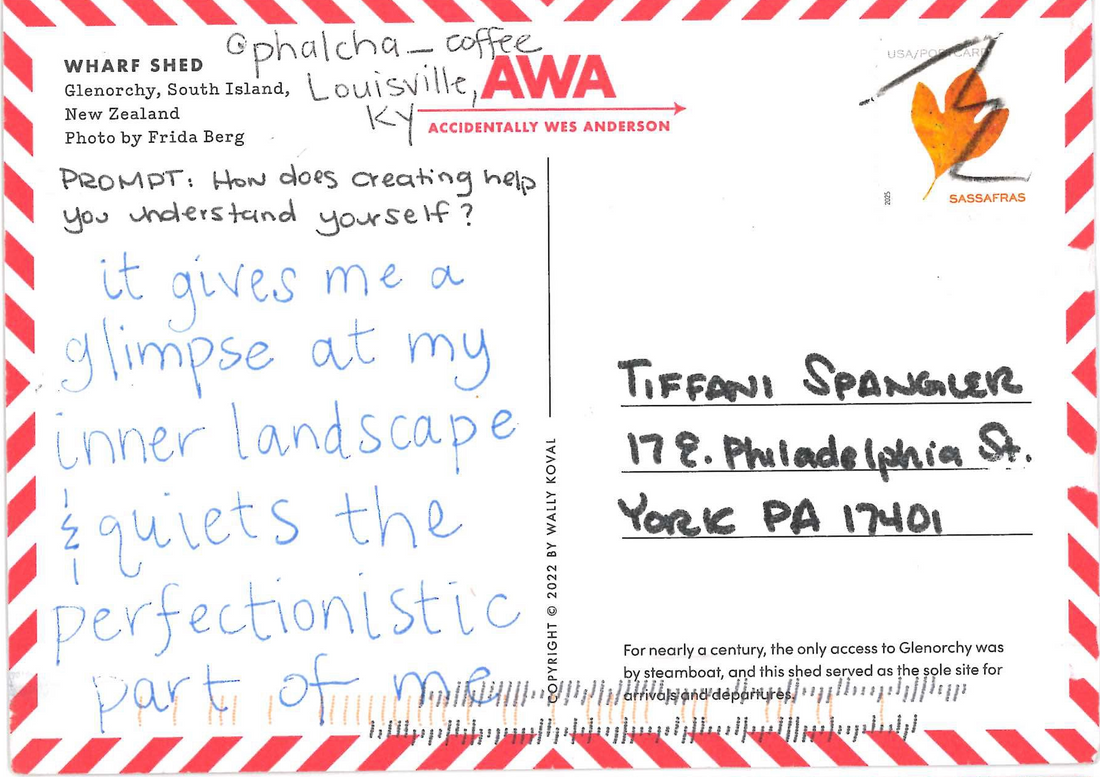 @phalcha_coffee
Louisville,
KY
WHARF SHED
Glenorchy, South Island,
New Zealand
Photo by Frida Berg
AWA
ACCIDENTALLY WES ANDERSON
USA/POSTCARD
2025
SASSAFRAS
PROMPT: How does creating help
you understand yourself?
it gives me a
glimpse at my
inner landscape
& quiets the
perfectionistic
part of me
COPYRIGHT © 2022 BY WALLY KOVAL
TIFFANI SPANGLER
17 E. Philadelphia St.
YORK PA 17401
For nearly a century, the only access to Glenorchy was
by steamboat, and this shed served as the sole site for
arrivals and departures.